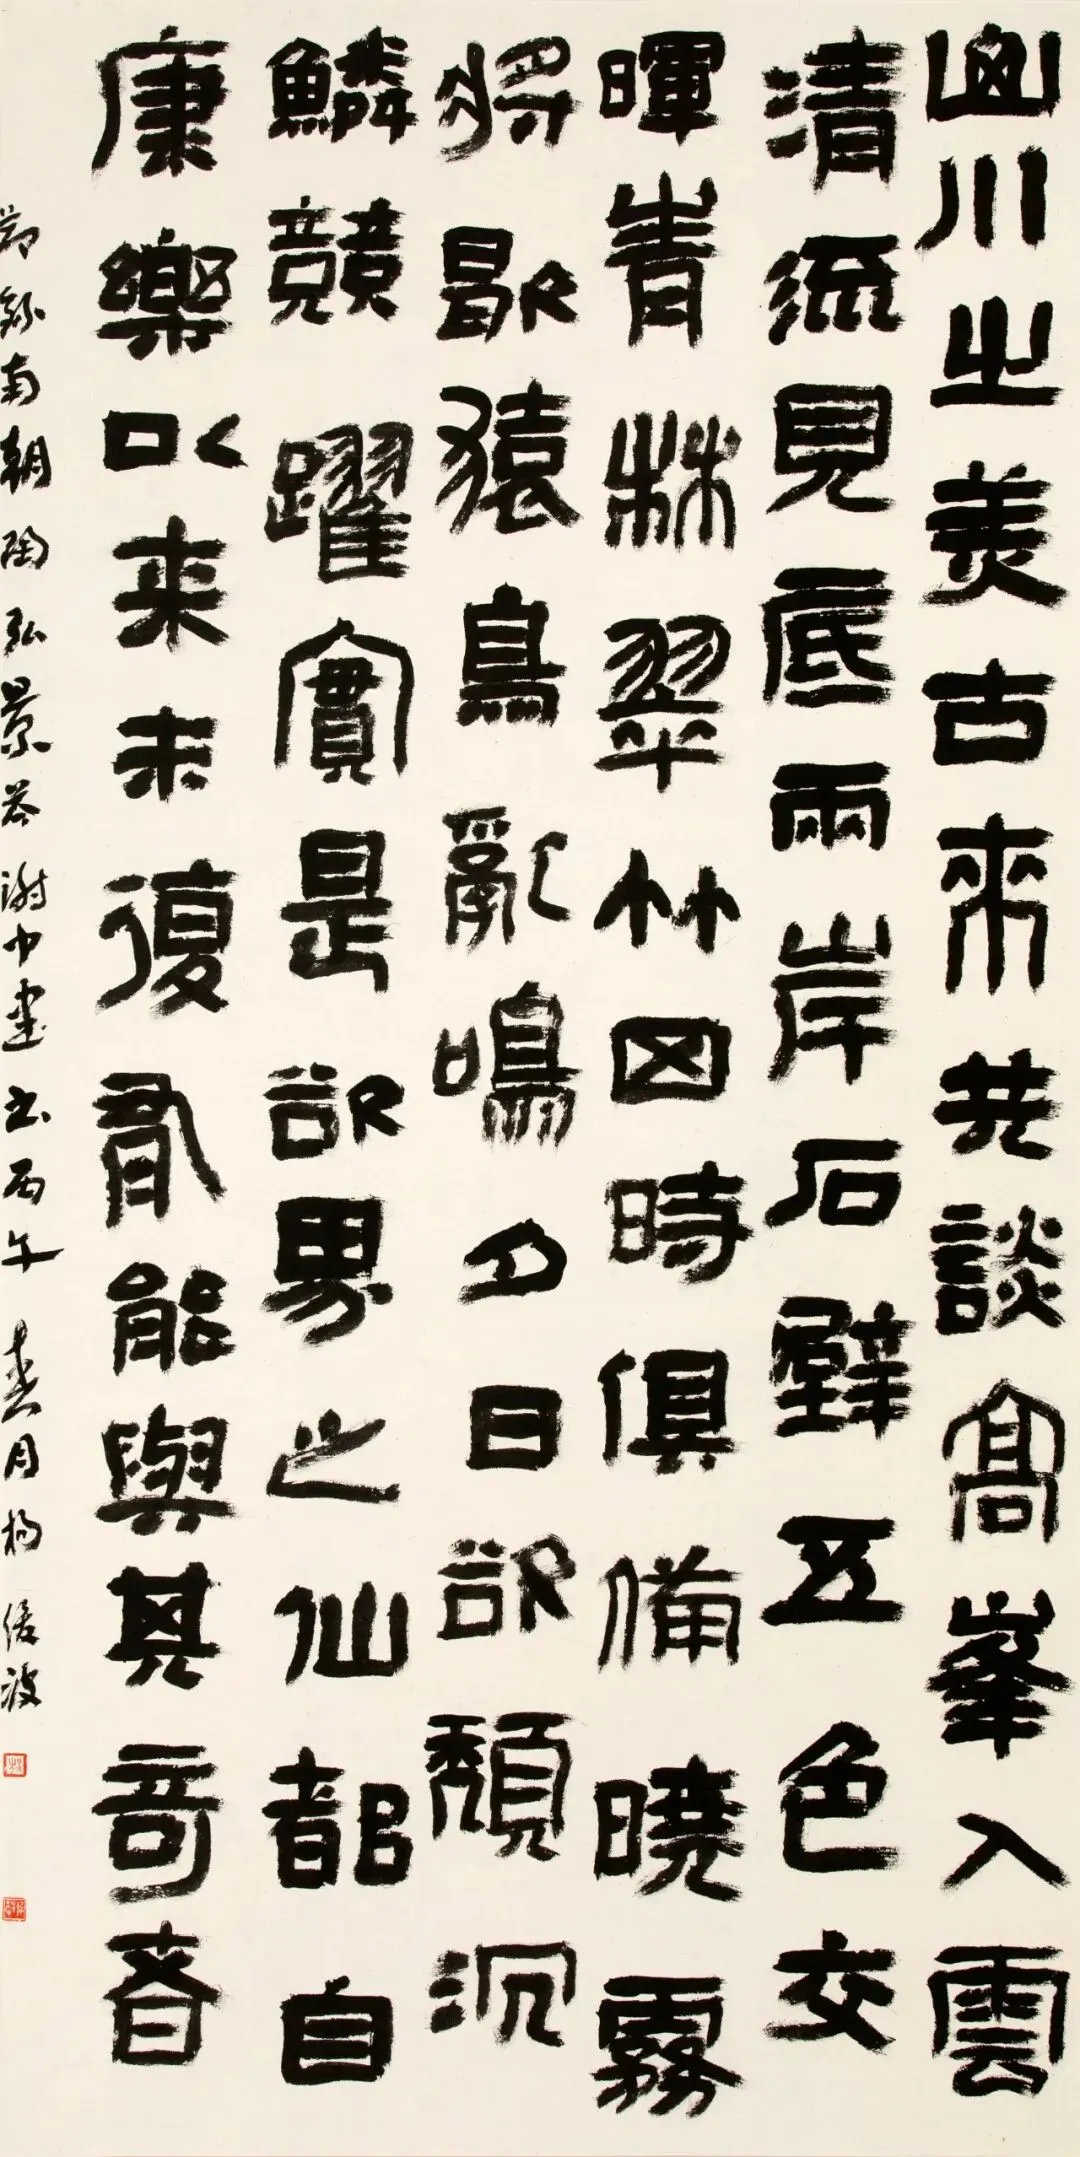 山川之美古來共談高峯入雲
清流見底兩岸石壁五色交
暉青林翠竹四時俱備曉霧
將歇猿鳥亂鳴夕日欲頹沉
鱗競躍實是欲界之仙都自
康樂以来未復有能與其奇者
節錄南朝陶弘景答謝中書书丙午春月楊波